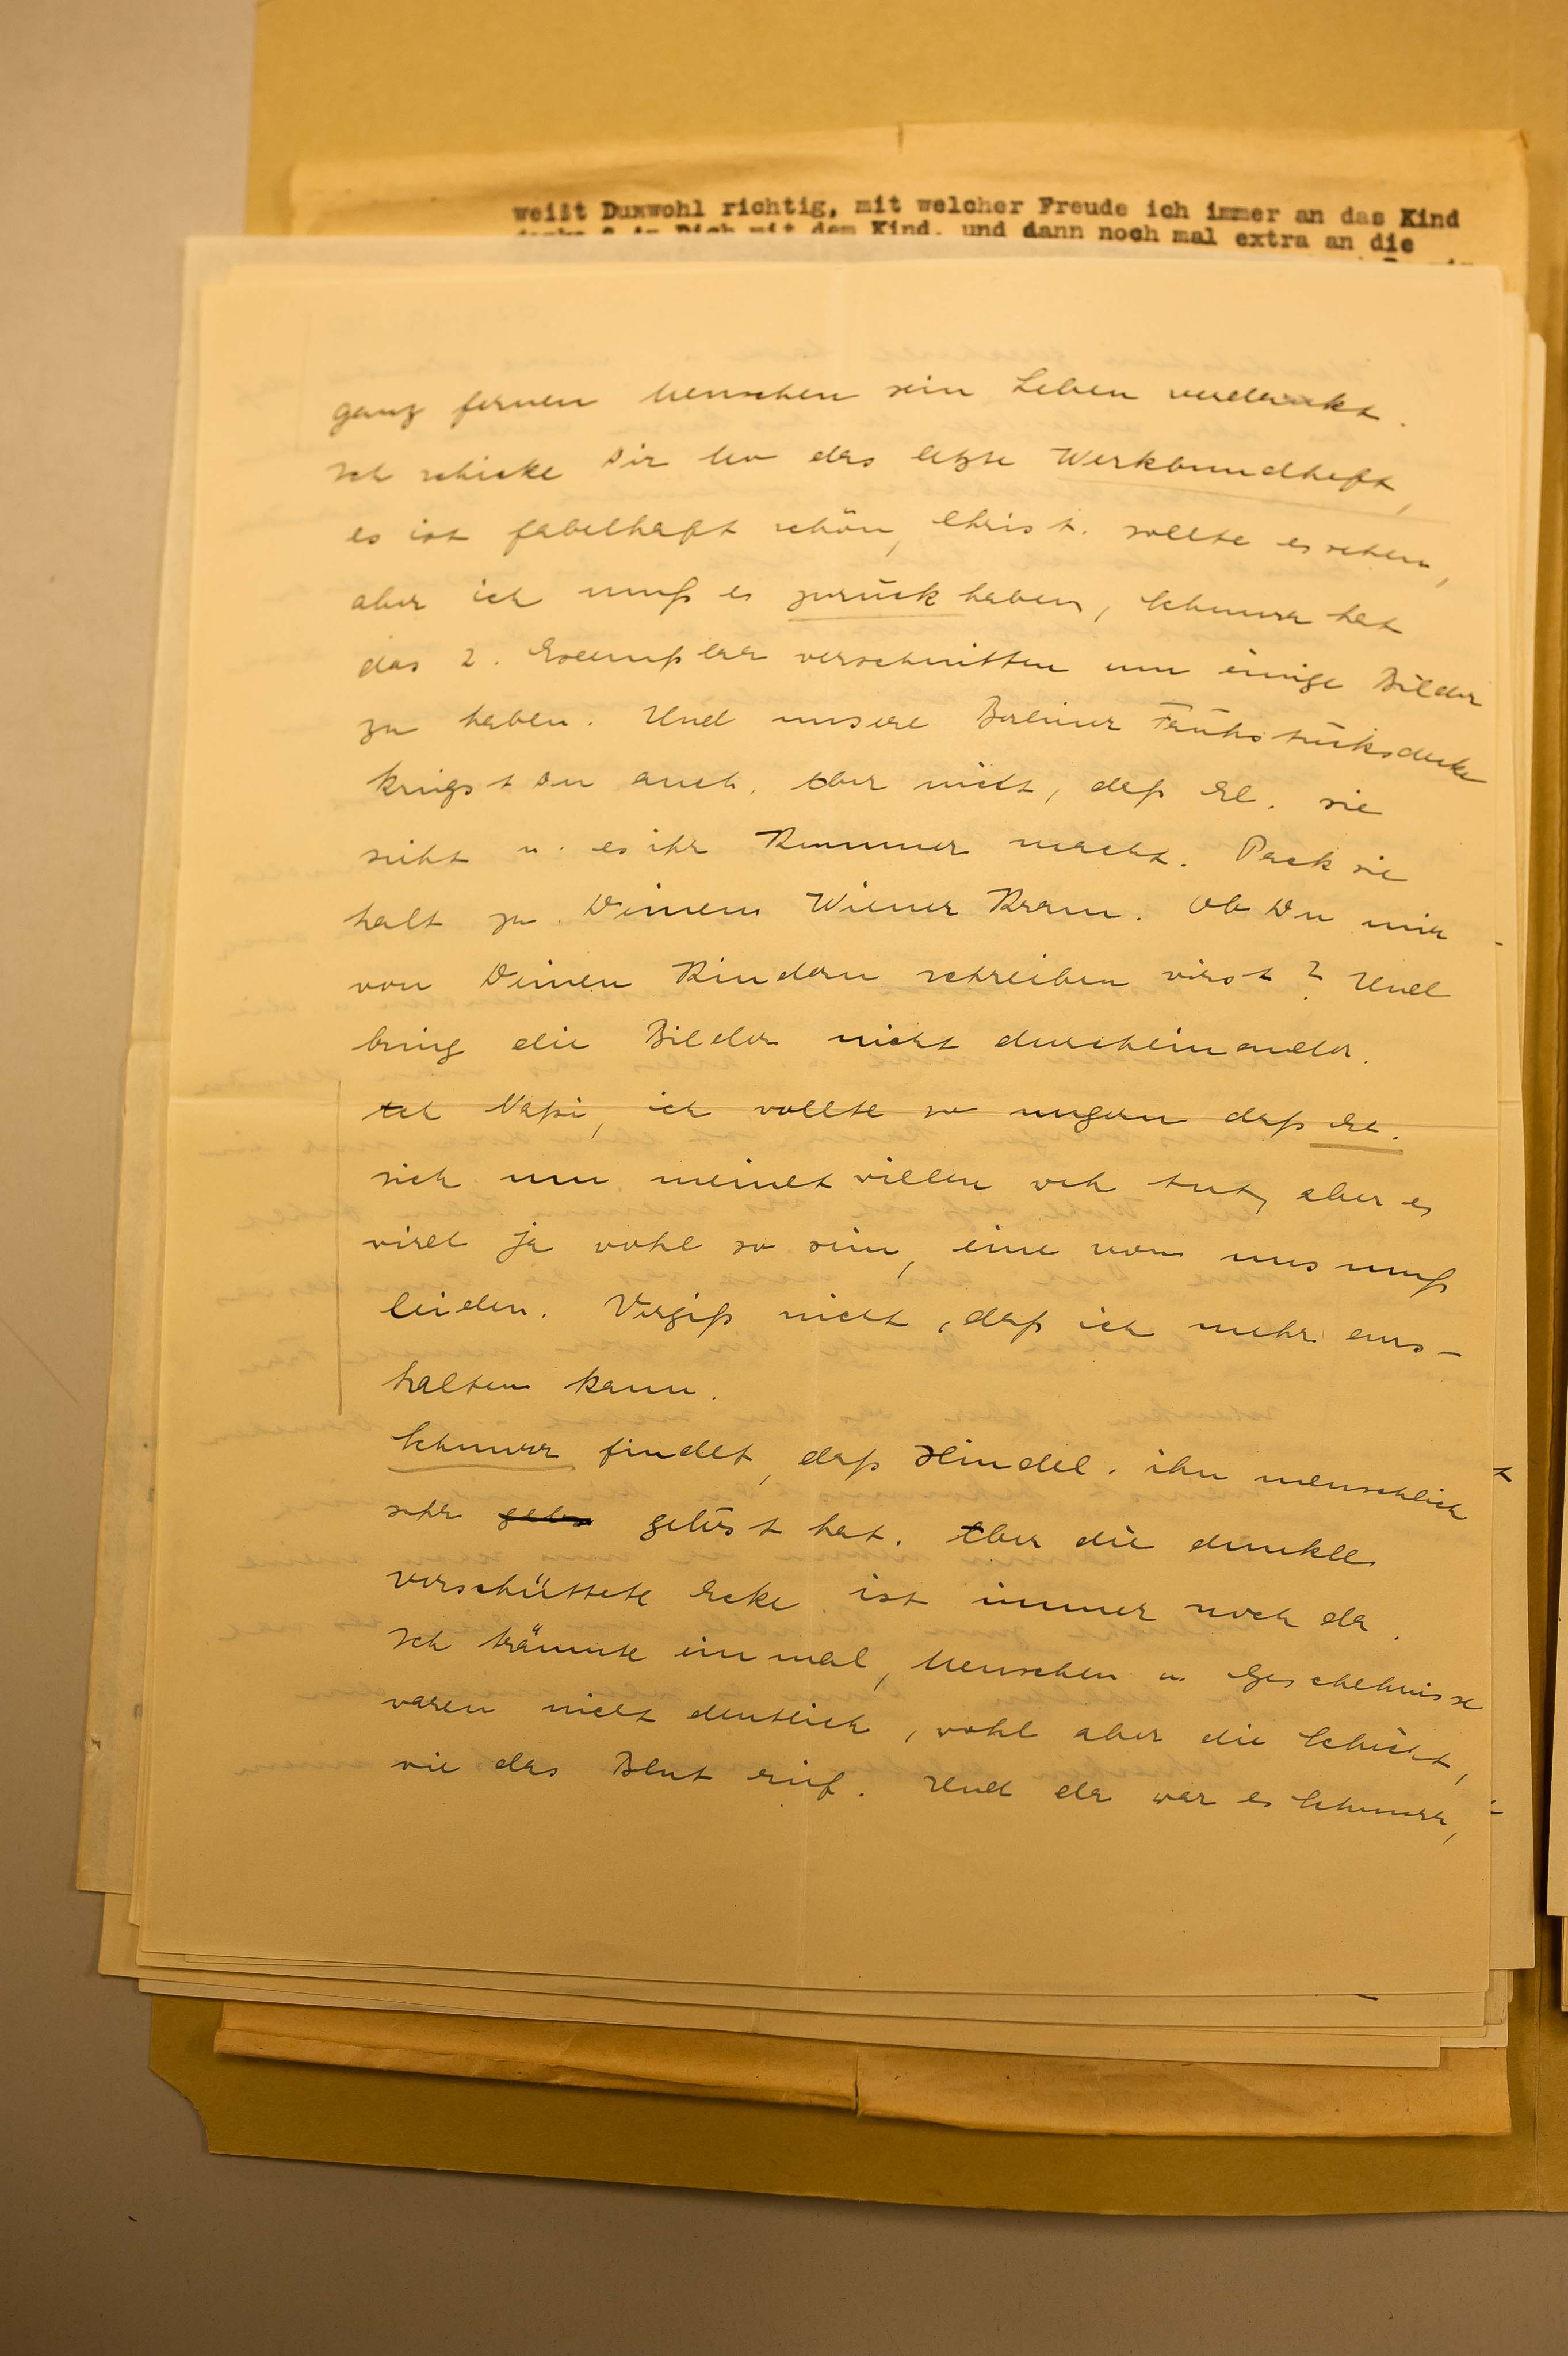 weißt Duxwohl richtig, mit welcher Freude ich immer an das Kind
Dich mit dem Kind. und dann noch mal extra an die
ganz fernen Menschen sein Leben verdankt.
Ich schicke Dir das letzte Werkbundheft,
es ist fabelhaft schön, Christ. sollte es sehen,
aber ich muß es zurück haben, Schnurr hat
das 2. Exemplar verschnitten um einige Bilder
zu haben. Und unsere Berliner Frühstücksdecke
kriegst Du auch. Aber nicht, daß El. sie
sieht u. es ihr Kummer macht. Pack sie
halt zu Deinem Wiener Kram. Ob Du mir
von Deinen Kindern schreiben wirst? Und
bring die Bilder nicht durcheinander.
Ach ich wollte so ungern daß El.
sich um meinet willen weh tut, aber es
wird ja wohl so sein, eine von uns muß
leiden. Vergiß nicht, daß ich mehr aus-
halten kann.
Schnurr findet, daß Hindel. ihn menschlich
sehr gelöst hat. Aber die dunkle
verschüttete Ecke ist immer noch da.
Ich träumte einmal, Menschen u. Geschehnisse
waren nicht deutlich, wohl aber die Schicht,
wie das Blut rief. Und da war es Schnurr,